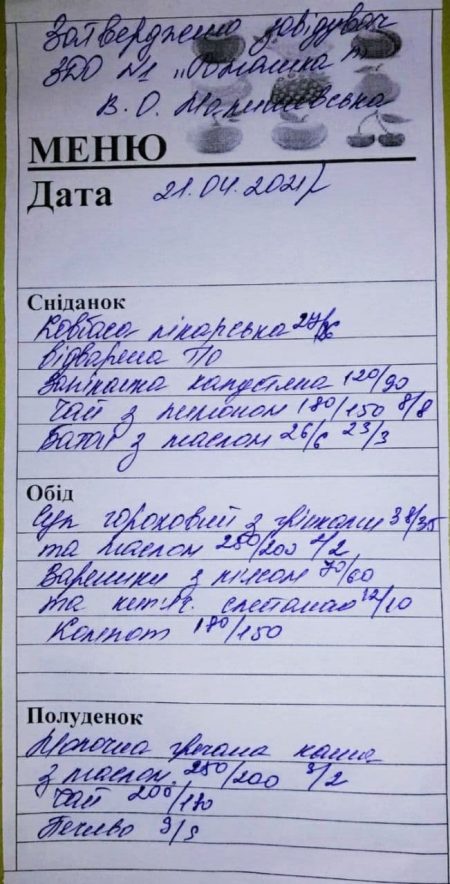 Затверджено завідувач
ЗДО №1 „Ромашка"
В. О. Малишевська
МЕНЮ
Дата 21.04.2021
Сніданок
Ковбаса лікарська
відварена п/о
Запіканка капустяна 120/90
Чай з лимоном 180/150 8/8
Батон з маслом 26/6 23/3
Обід
Суп гороховий з грінками 38/35
та маслом 250/200 2/2
Вареники з м'ясом 70/60
та сметаною 12/10
Компот 180/150
Полуденок
Молочна гречана каша
з маслом 250/200 3/2
Чай 200/180
Печиво 9/9